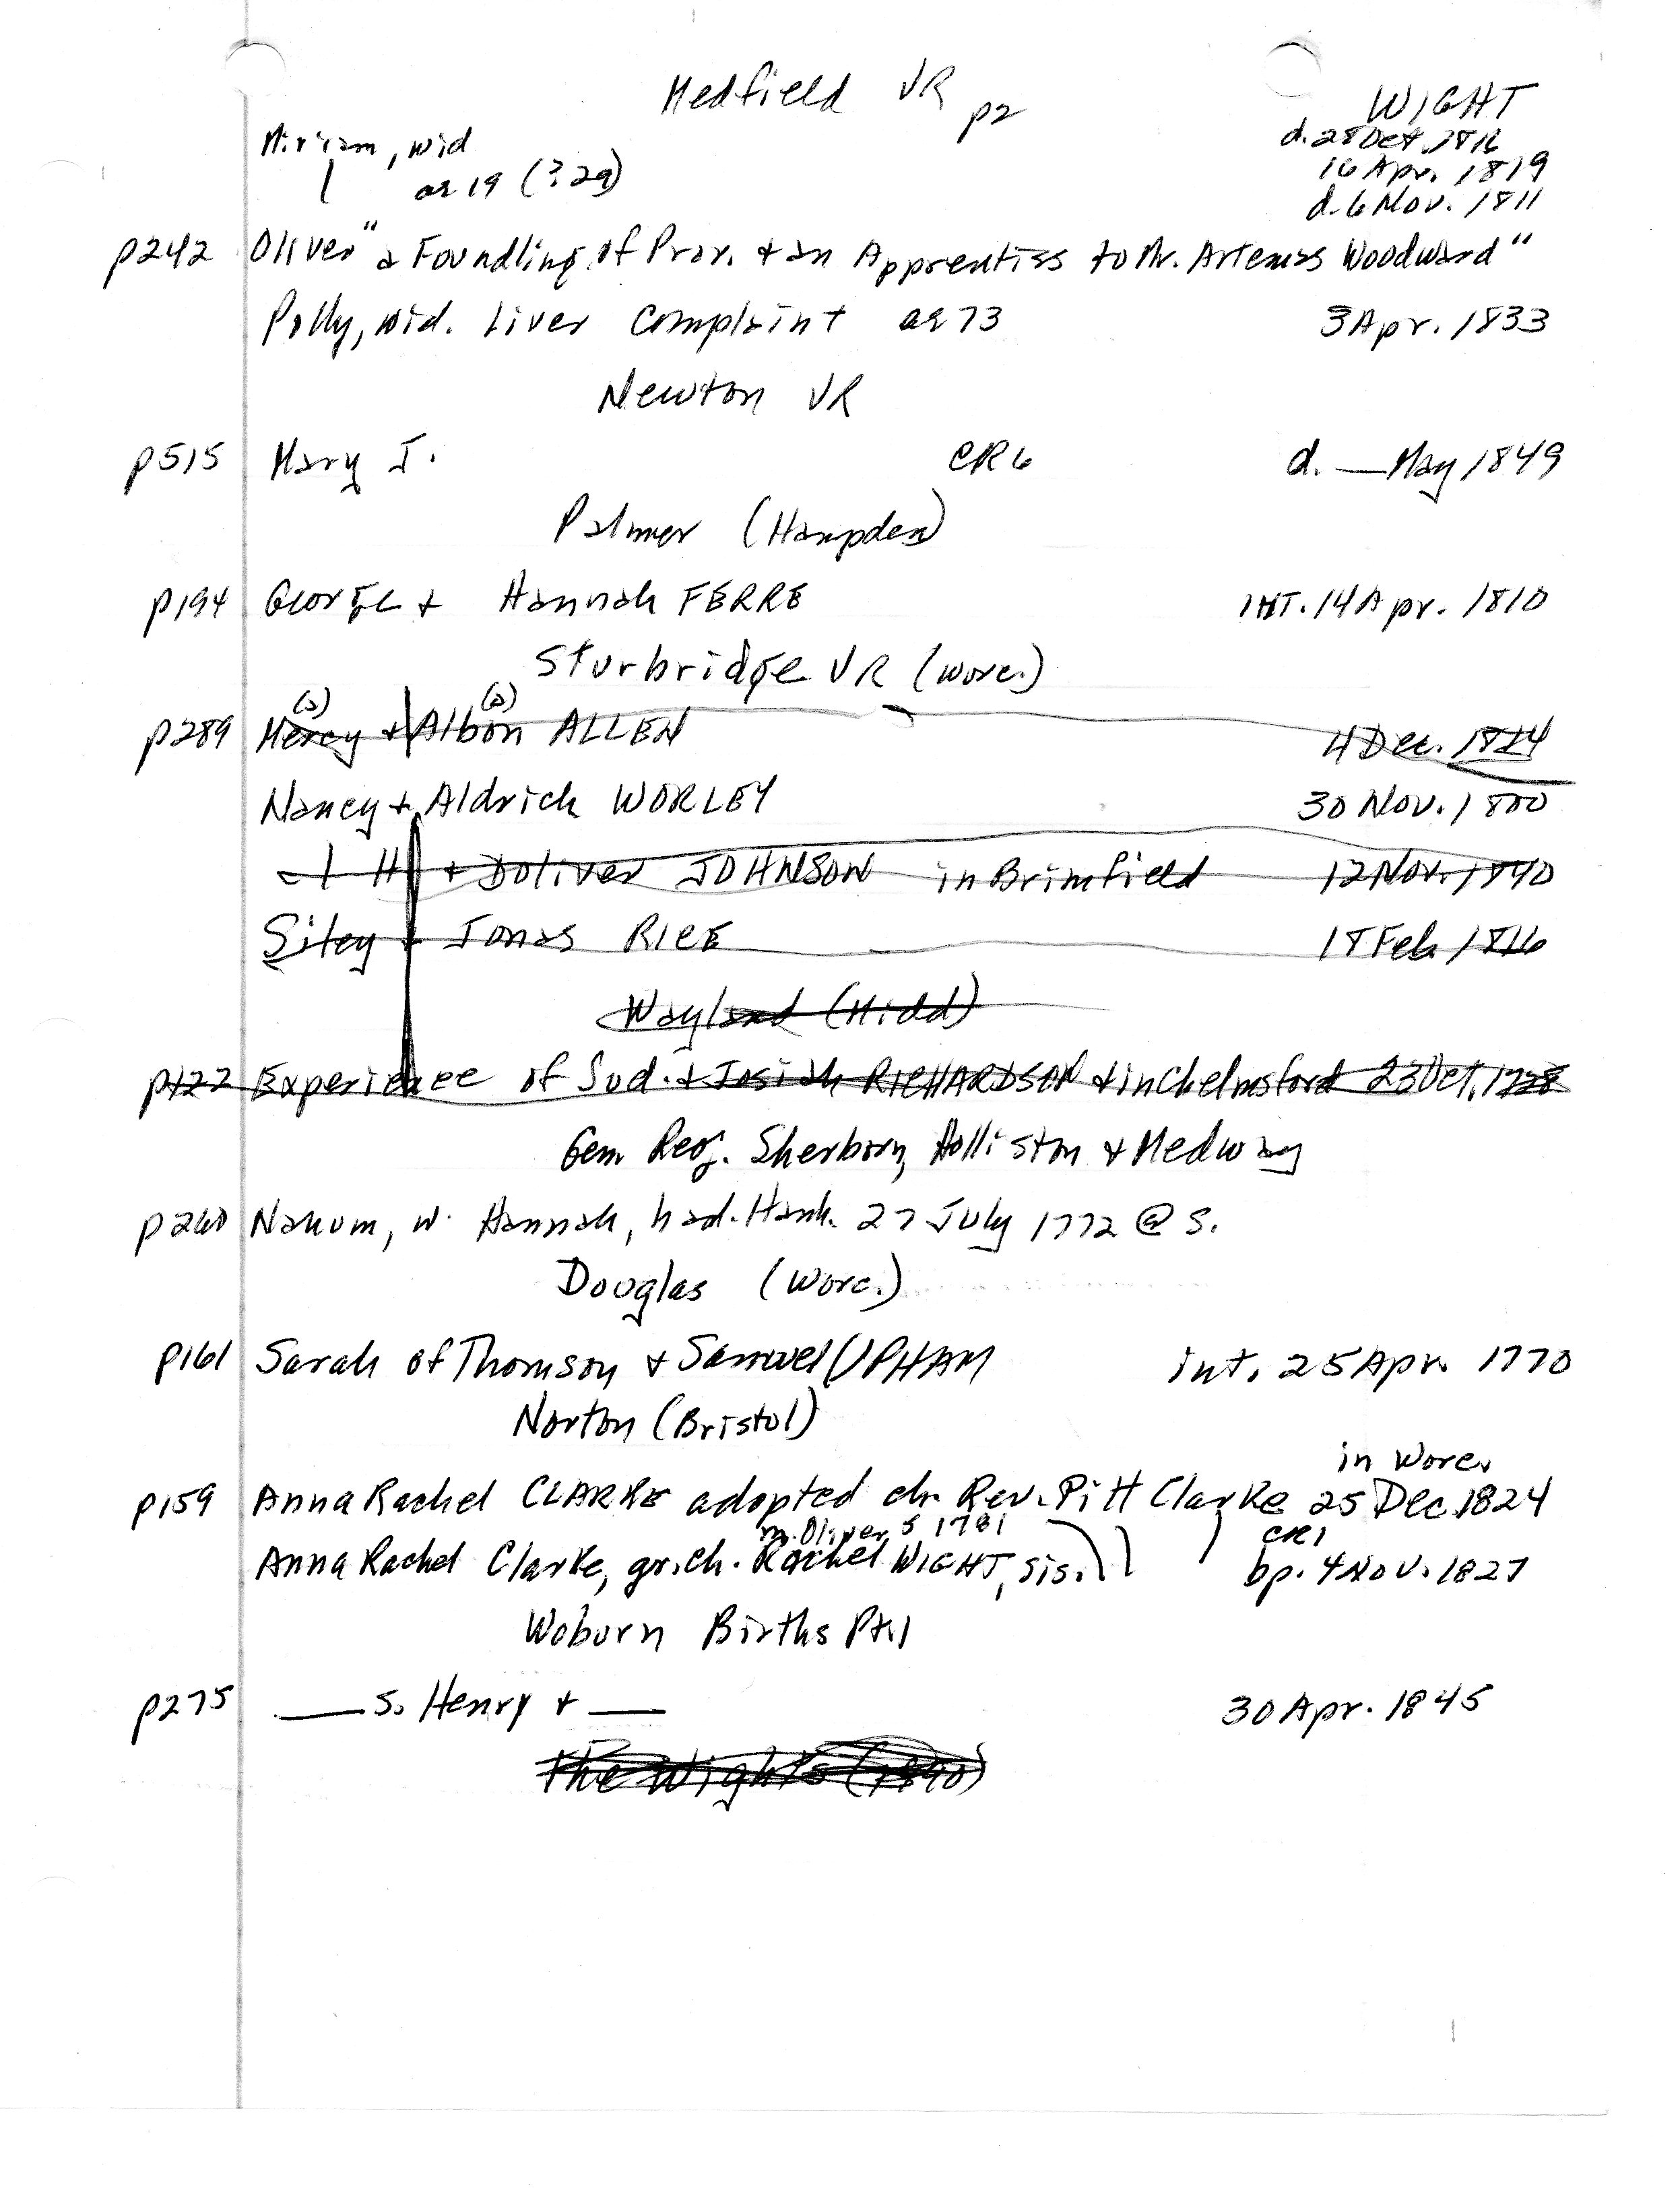 Medfield VR p2 WIGHT
Miriam, wid d. 28 Oct. 1816
ae 19 (? 29) 16 Apr. 1819
d. 6 Nov. 1811
p242 Oliver "a Foundling of Prov. + an Apprentiss to Mr. Artemas Woodward"
Polly, wid. Liver Complaint ae 73 3 Apr. 1833
Newton VR
p515 Mary J. CR6 d. — May 1849
Palmer (Hampden)
p194 George + Hannah FERRE INT. 14 Apr. 1810
Sturbridge VR (Worc.)
(a) (a)
p289 Mercy + Albon ALLEN 4 Dec. 1824
Nancy + Aldrich WORLEY 30 Nov. 1800
H + Doliver JOHNSON in Brimfield 12 Nov. 1840
Siley + Jonas RICE 18 Feb 1816
Wayland (Midd)
p122 Experience of Sud. + Josiah RICHARDSON + in Chelmsford 23 Oct. 1728
Gem Reg. Sherborn, Holliston + Medway
p260 Nahum, w. Hannah, had. Hanh. 27 July 1772 @ S.
Douglas (Worc.)
p161 Sarah of Thomson + Samuel UPHAM int. 25 Apr. 1770
Norton (Bristol)
in Worc.
p159 Anna Rachel CLARKE adopted ch. Rev. Pitt Clarke 25 Dec. 1824
m. Oliver 5 1781 CR1
Anna Rachel Clarke, gr. ch. Rachel WIGHT, sis. bp. 4 Nov. 1827
Woburn Births Pt. 1
p275 — s. Henry + — 30 Apr. 1845
The Wights (1890)